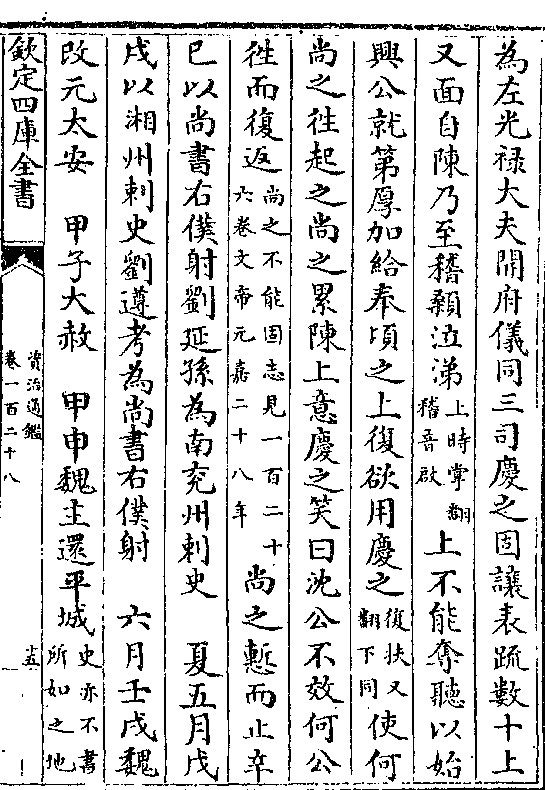 為左光禄大夫開府儀同三司慶之固讓表疏數十上
又面自陳乃至稽顙泣涕上時掌翻稽音啟上不能奪聽以始
興公就第厚加給奉頃之上復欲用慶之復扶又翻下同使何
尚之徃起之尚之累陳上意慶之笑曰沈公不效何公
徃而復返尚之不能固志見一百二十六卷文帝元嘉二十八年尚之慙而止辛
巳以尚書右僕射劉延孫為南兖州刺史　夏五月戊
戌以湘州刺史劉遵考為尚書右僕射　六月壬戌魏
改元太安　甲子大赦　甲申魏主還平城史亦不書所如之地
欽定四庫全書
資治通鑑
卷一百二十八
十五